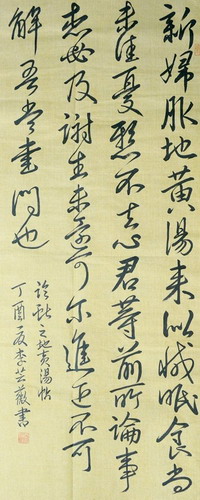 新婦服地黄湯来似減眠食尚
未佳憂懸不去心君等前所論事
想必及謝生未還可尔進退不可
解吾當書問也
臨獻之地黄湯帖
丁酉夏李芸薇書